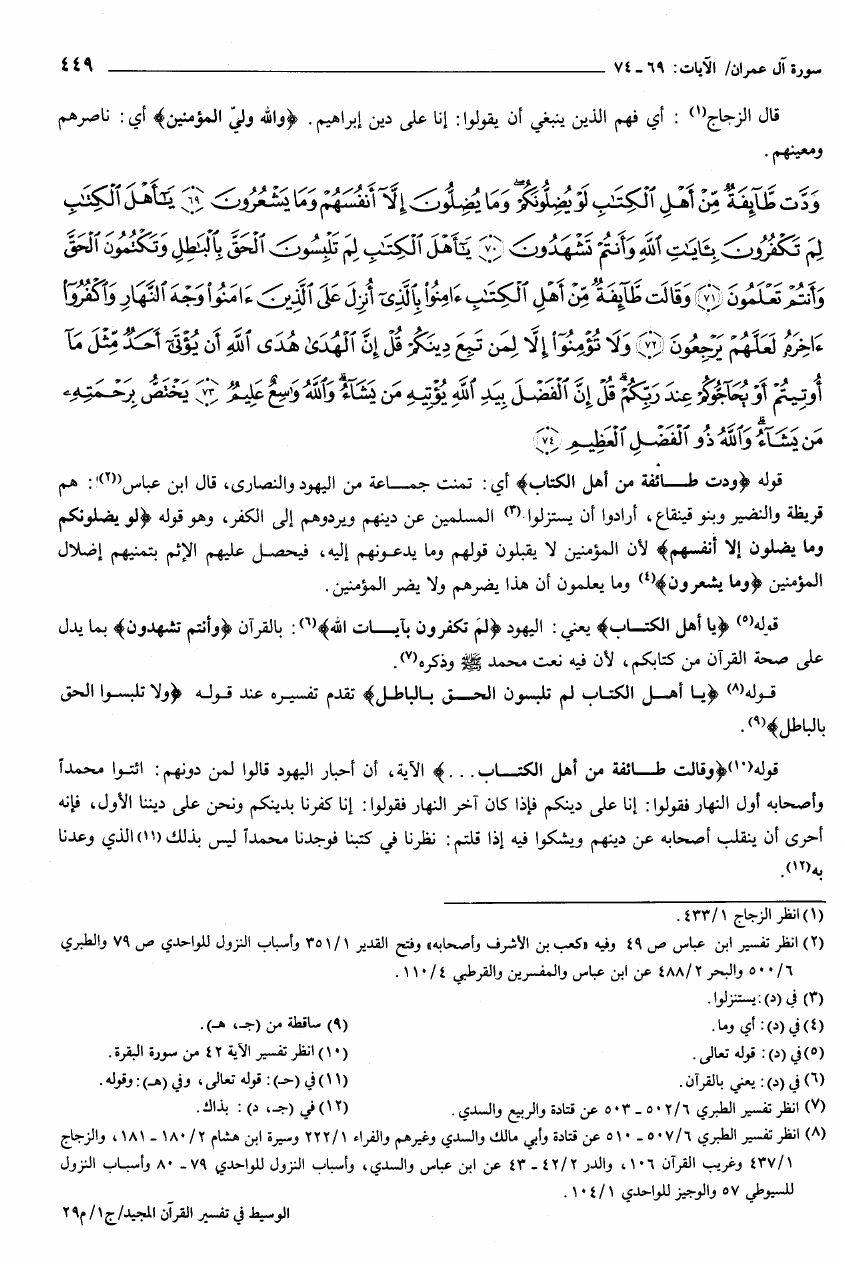 سورة آل عمران/ الآيات: ٦٩ ـ ٧٤ ٤٤٩
قال الزجاج(١) : أي فهم الذين ينبغي أن يقولوا: إنا على دين إبراهيم. ﴿والله وليّ المؤمنين﴾ أي: ناصرهم
ومعينهم.
وَدَّت طَّآئِفَةٌ مِّنْ أَهْلِ ٱلْكِتَٰبِ لَوْ يُضِلُّونَكُمْ وَمَا يُضِلُّونَ إِلَّآ أَنفُسَهُمْ وَمَا يَشْعُرُونَ ٦٩ يَٰٓأَهْلَ ٱلْكِتَٰبِ
لِمَ تَكْفُرُونَ بِـَٔايَٰتِ ٱللَّهِ وَأَنتُمْ تَشْهَدُونَ ٧٠ يَٰٓأَهْلَ ٱلْكِتَٰبِ لِمَ تَلْبِسُونَ ٱلْحَقَّ بِٱلْبَٰطِلِ وَتَكْتُمُونَ ٱلْحَقَّ
وَأَنتُمْ تَعْلَمُونَ ٧١ وَقَالَت طَّآئِفَةٌ مِّنْ أَهْلِ ٱلْكِتَٰبِ ءَامِنُوا۟ بِٱلَّذِىٓ أُنزِلَ عَلَى ٱلَّذِينَ ءَامَنُوا۟ وَجْهَ ٱلنَّهَارِ وَٱكْفُرُوٓا۟
ءَاخِرَهُۥ لَعَلَّهُمْ يَرْجِعُونَ ٧٢ وَلَا تُؤْمِنُوٓا۟ إِلَّا لِمَن تَبِعَ دِينَكُمْ قُلْ إِنَّ ٱلْهُدَىٰ هُدَى ٱللَّهِ أَن يُؤْتَىٰٓ أَحَدٌ مِّثْلَ مَآ
أُوتِيتُمْ أَوْ يُحَآجُّوكُمْ عِندَ رَبِّكُمْ ۗ قُلْ إِنَّ ٱلْفَضْلَ بِيَدِ ٱللَّهِ يُؤْتِيهِ مَن يَشَآءُ ۗ وَٱللَّهُ وَٰسِعٌ عَلِيمٌ ٧٣ يَخْتَصُّ بِرَحْمَتِهِۦ
مَن يَشَآءُ ۗ وَٱللَّهُ ذُو ٱلْفَضْلِ ٱلْعَظِيمِ ٧٤
قوله ﴿ودت طـائفة من أهل الكتاب﴾ أي: تمنت جمـاعة من اليهود والنصارى، قال ابن عباس(٢): هم
قريظة والنضير وبنو قينقاع، أرادوا أن يستزلوا(٣) المسلمين عن دينهم ويردوهم إلى الكفر، وهو قوله ﴿لو يضلونكم
وما يضلون إلا أنفسهم﴾ لأن المؤمنين لا يقبلون قولهم وما يدعـونهم إليه، فيحصـل عليهم الإثم بتمنيهم إضلال
المؤمنين ﴿وما يشعرون﴾(٤) وما يعلمون أن هذا يضرهم ولا يضر المؤمنين.
قوله(٥) ﴿يا أهل الكتـاب﴾ يعني: اليهود ﴿لم تكفرون بآيـات الله﴾(٦): بالقرآن ﴿وأنتم تشهدون﴾ بما يدل
على صحة القرآن من كتابكم، لأن فيه نعت محمد ﷺ وذكره(٧).
قـوله(٨) ﴿يـا أهـل الكتـاب لم تلبسون الحـق بـالباطـل﴾ تقدم تفسيـره عند قـولـه ﴿ولا تلبسـوا الحق
بالباطل﴾(٩).
قوله(١٠)﴿وقالت طـائفة من أهل الكتـاب...﴾ الآية، أن أحبار اليهود قالوا لمن دونهم: ائتـوا محمداً
وأصحابه أول النهار فقولوا: إنا على دينكم فإذا كان آخر النهار فقولوا: إنا كفرنا بدينكم ونحن على ديننا الأول، فإنه
أحرى أن ينقلب أصحابه عن دينهم ويشكوا فيه إذا قلتم: نظرنا في كتبنا فوجدنا محمداً ليس بذلك(١١)الذي وعدنا
به(١٢).
(١) انظر الزجاج ٤٣٣/١.
(٢) انظر تفسير ابن عباس ص ٤٩ وفيه «كعب بن الأشرف وأصحابه» وفتح القدير ٣٥١/١ وأسباب النزول للواحدي ص ٧٩ والطبري
٥٠٠/٦ والبحر ٤٨٨/٢ عن ابن عباس والمفسرين والقرطبي ١١٠/٤.
(٣) في (د): يستنزلوا.
(٤) في (د): أي وما.
(٥) في (د): قوله تعالى.
(٦) في (د): يعني بالقرآن.
(٧) انظر تفسير الطبري ٥٠٢/٦ ـ ٥٠٣ عن قتادة والربيع والسدي.
(٩) ساقطة من (جـ، هـ).
(١٠) انظر تفسير الآية ٤٢ من سورة البقرة.
(١١) في (حـ): قوله تعالى، وفي (هـ): وقوله.
(١٢) في (جـ، د) : بذاك.
(٨) انظر تفسير الطبري ٥٠٧/٦ ـ ٥١٠ عن قتادة وأبي مالك والسدي وغيرهم والفراء ٢٢٢/١ وسيرة ابن هشام ١٨٠/٢ ـ ١٨١، والزجاج
٤٣٧/١ وغريب القرآن ١٠٦، والدر ٤٢/٢ ـ ٤٣ عن ابن عباس والسدي، وأسباب النزول للواحدي ٧٩ ـ ٨٠ وأسبـاب النزول
للسيوطي ٥٧ والوجيز للواحدي ١٠٤/١.
الوسيط في تفسير القرآن المجيد/ ج١/ م٢٩